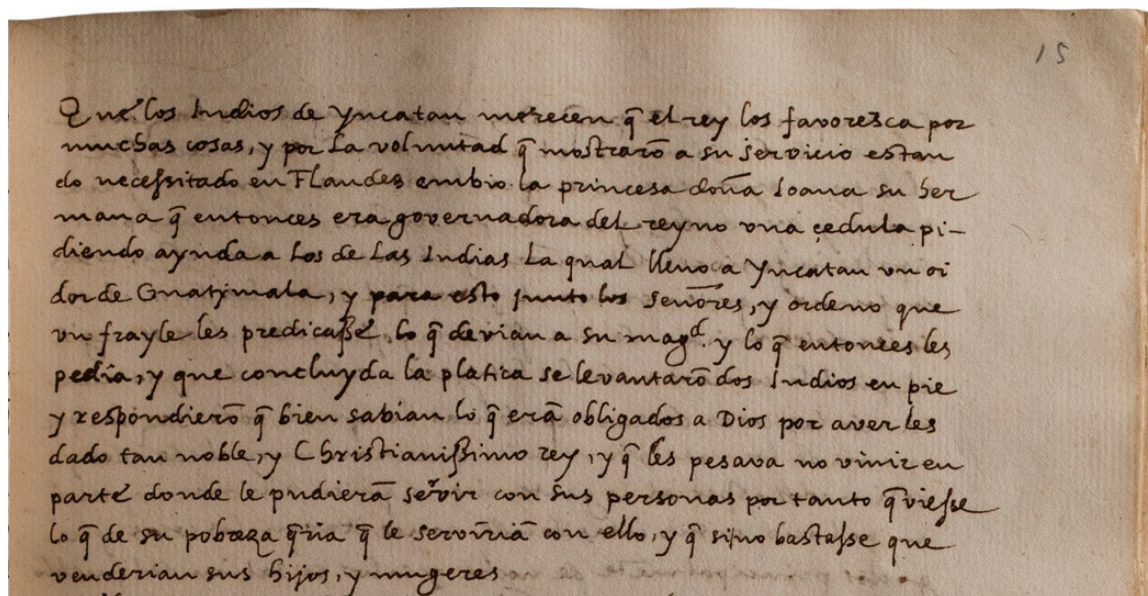 15
Que los Indios de Yucatan merecen q̃ el rey los favoresca por
muchas cosas, y por la voluntad q̃ mostrarõ a su servicio estan
do necessitado en Flandes embio la princesa doña Ioana su her
mana q̃ entonces era governadora del reyno una çedula pi-
diendo ayuda a los de las Indias la qual llevo a Yucatan un oi
dor de Guatimala, y para esto junto los señores, y ordeno que
un frayle les predicasse lo q̃ devian a su magd. y lo q̃ entonces les
pedia, y que concluyda la platica se levantarõ dos Indios en pie
y respondierõ q̃ bien sabian lo q̃ erã obligados a Dios por aver les
dado tan noble, y Christianissimo rey, y q̃ les pesava no vivir en
parte donde le pudierã servir con sus personas por tanto q̃ viesse
lo q̃ de su pobreza q̃ria q̃ le servirīā con ello, y q̃ sino bastasse que
venderian sus hijos, y mugeres